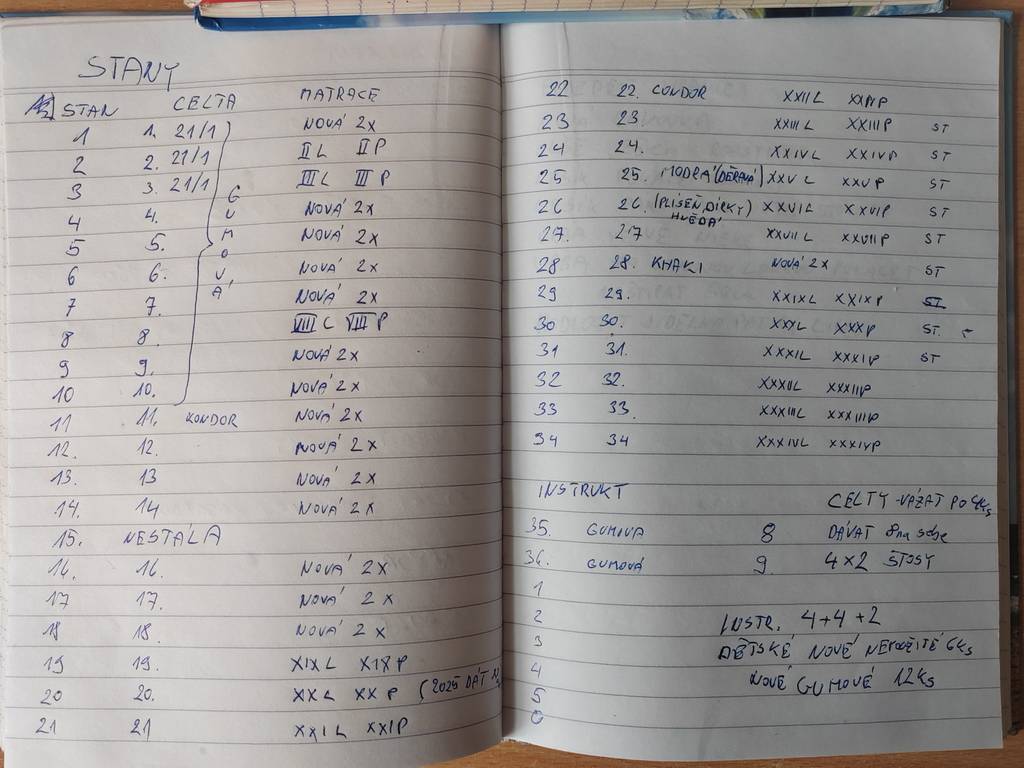 STANY
STAN CELTA MATRACE
1 1. 21/1 NOVÁ 2x
2 2. 21/1 II L II P
3 3. 21/1 III L III P
GUMOVÁ
4 4. NOVÁ 2x
5 5. NOVÁ 2x
6 6. NOVÁ 2x
7 7. NOVÁ 2x
8 8. VIII L VIII P
9 9. NOVÁ 2x
10 10. NOVÁ 2x
11 11. KONDOR NOVÁ 2x
12. 12. NOVÁ 2x
13. 13 NOVÁ 2x
14. 14 NOVÁ 2x
15. NESTÁLA
16. 16. NOVÁ 2x
17 17. NOVÁ 2x
18 18. NOVÁ 2x
19 19. XIX L XIX P
20 20. XX L XX P (2025 DÁT
21 21 XXI L XXI P
22 22. CONDOR XXII L XXII P
23 23. XXIII L XXIII P ST
24 24. XXIV L XXIV P ST
25 25. MODRÁ (DĚRAVÁ) XXV L XXV P ST
26 26. (PLISEŇ, DÍRKY) XXVI L XXVI P ST
HNĚDÁ
27. 27 XXVII L XXVII P ST
28 28. KHAKI NOVÁ 2x ST
29 29. XXIX L XXIX P ST
30 30. XXX L XXX P ST.
31 31. XXXI L XXXI P ST
32 32. XXXII L XXXII P
33 33. XXXIII L XXXIII P
34 34 XXXIV L XXXIV P
INSTRUKT CELTY - VÁZAT PO 4KS
35. GUMOVA 8 DÁVAT 8 na sebe
36. GUMOVÁ 9. 4x2 ŠTOSY
1
2 INSTR. 4+4+2
3 DĚTSKÉ NOVÉ NEPOUŽITÉ 6KS
4 NOVÉ GUMOVÉ 12KS
5
6